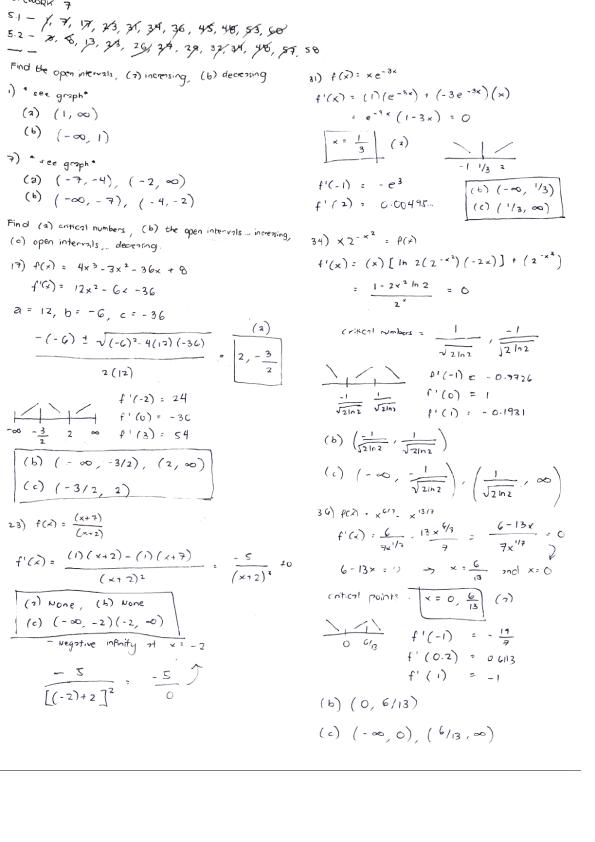 7
5.1 - 1, 7, 17, 23, 31, 34, 36, 45, 48, 53, 60
5.2 - 8, 13, 29, 32, 48, 57, 58
Find the open intervals, (a) increasing, (b) decreasing
1) *see graph*
(a) (1, ∞)
(b) (-∞, 1)
7) *see graph*
(a) (-7, -4), (-2, ∞)
(b) (-∞, -7), (-4, -2)
Find (a) critical numbers, (b) the open intervals... increasing,
(c) open intervals... decreasing.
17) f(x) = 4x³ - 3x² - 36x + 8
f'(x) = 12x² - 6x - 36
a = 12, b = -6, c = -36
-(-6) ± √(-6)² - 4(12)(-36) / 2(12) = 2, -3/2 (a)
f'(-2) = 24
f'(0) = -36
f'(3) = 54
-∞ -3/2 2 ∞
(b) (-∞, -3/2), (2, ∞)
(c) (-3/2, 2)
23) f(x) = (x+7)/(x+2)
f'(x) = (1)(x+2) - (1)(x+7) / (x+2)² = -5/(x+2)² ≠0
(a) None, (b) None
(c) (-∞, -2)(-2, ∞)
- negative infinity at x = -2
-5/[(-2)+2]² = -5/0
31) f(x) = xe^-3x
f'(x) = (1)(e^-3x) + (-3e^-3x)(x)
= e^-3x (1-3x) = 0
x = 1/3 (a)
-1 1/3 2
f'(-1) = -e³
f'(2) = 0.00495..
(b) (-∞, 1/3)
(c) (1/3, ∞)
34) x2^-x² = f(x)
f'(x) = (x)[ln 2(2^-x²)(-2x)] + (2^-x²)
= 1-2x² ln 2 / 2^x = 0
critical numbers = 1/√2ln2, -1/√2ln2
-1/√2ln2 1/√2ln2
f'(-1) = -0.9726
f'(0) = 1
f'(1) = -0.1931
(b) (-1/√2ln2, 1/√2ln2)
(c) (-∞, -1/√2ln2), (1/√2ln2, ∞)
36) f(x) = x^6/7 - x^13/7
f'(x) = 6/7x^1/7 - 13x^6/7/7 = 6-13x/7x^1/7 = 0
6-13x = 0 → x = 6/13 and x=0
critical points = x = 0, 6/13 (a)
0 6/13
f'(-1) = -19/7
f'(0.2) = 0.6113
f'(1) = -1
(b) (0, 6/13)
(c) (-∞, 0), (6/13, ∞)